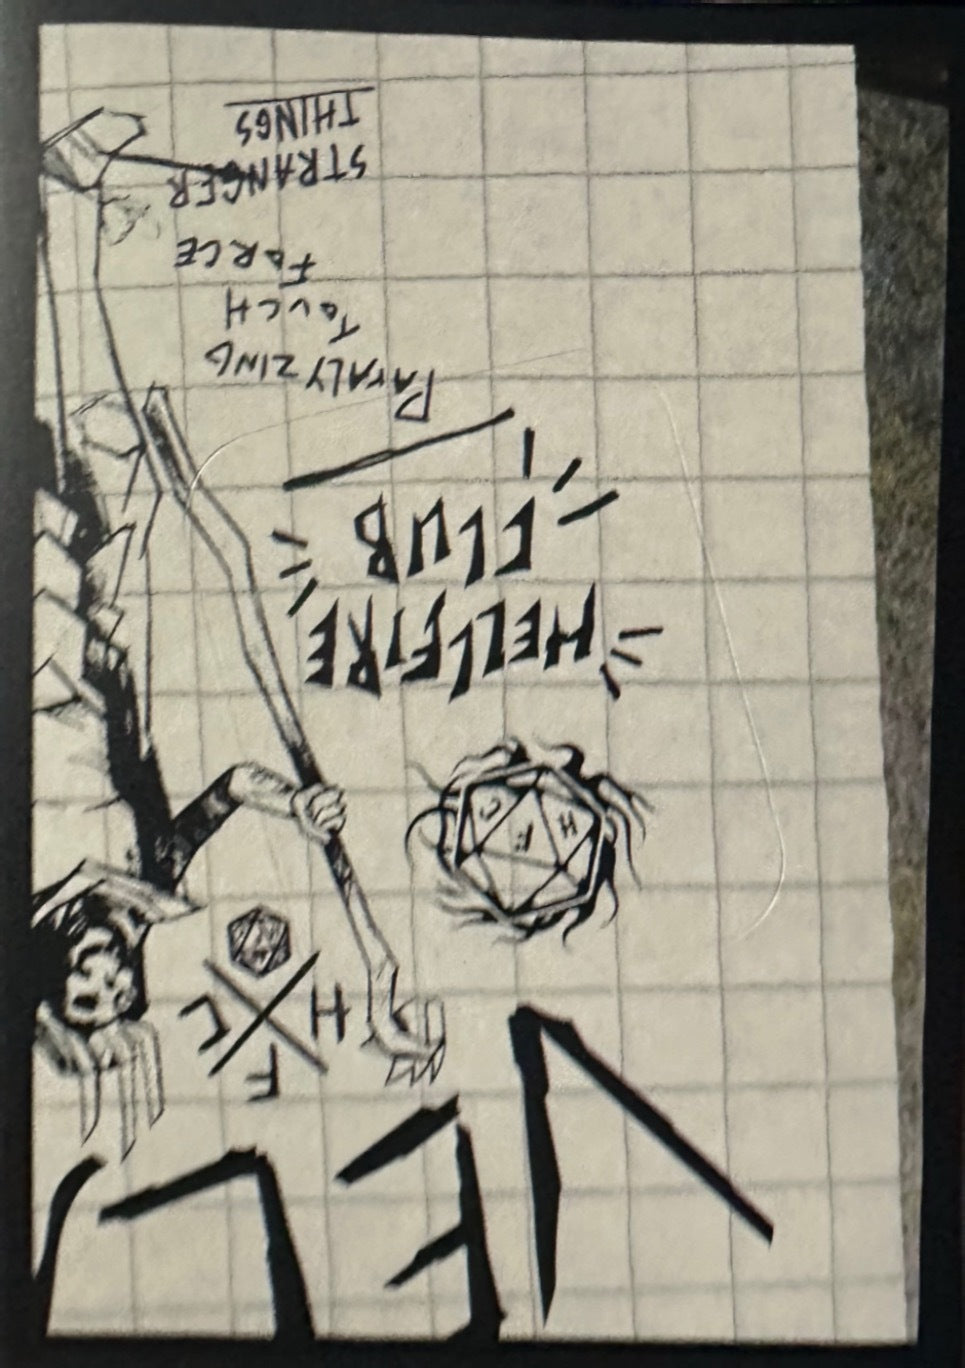 VEL
F
H C
H F C
HELLFIRE
CLUB
PARALYZING
TOUCH
FORCE
STRANGER
THINGS